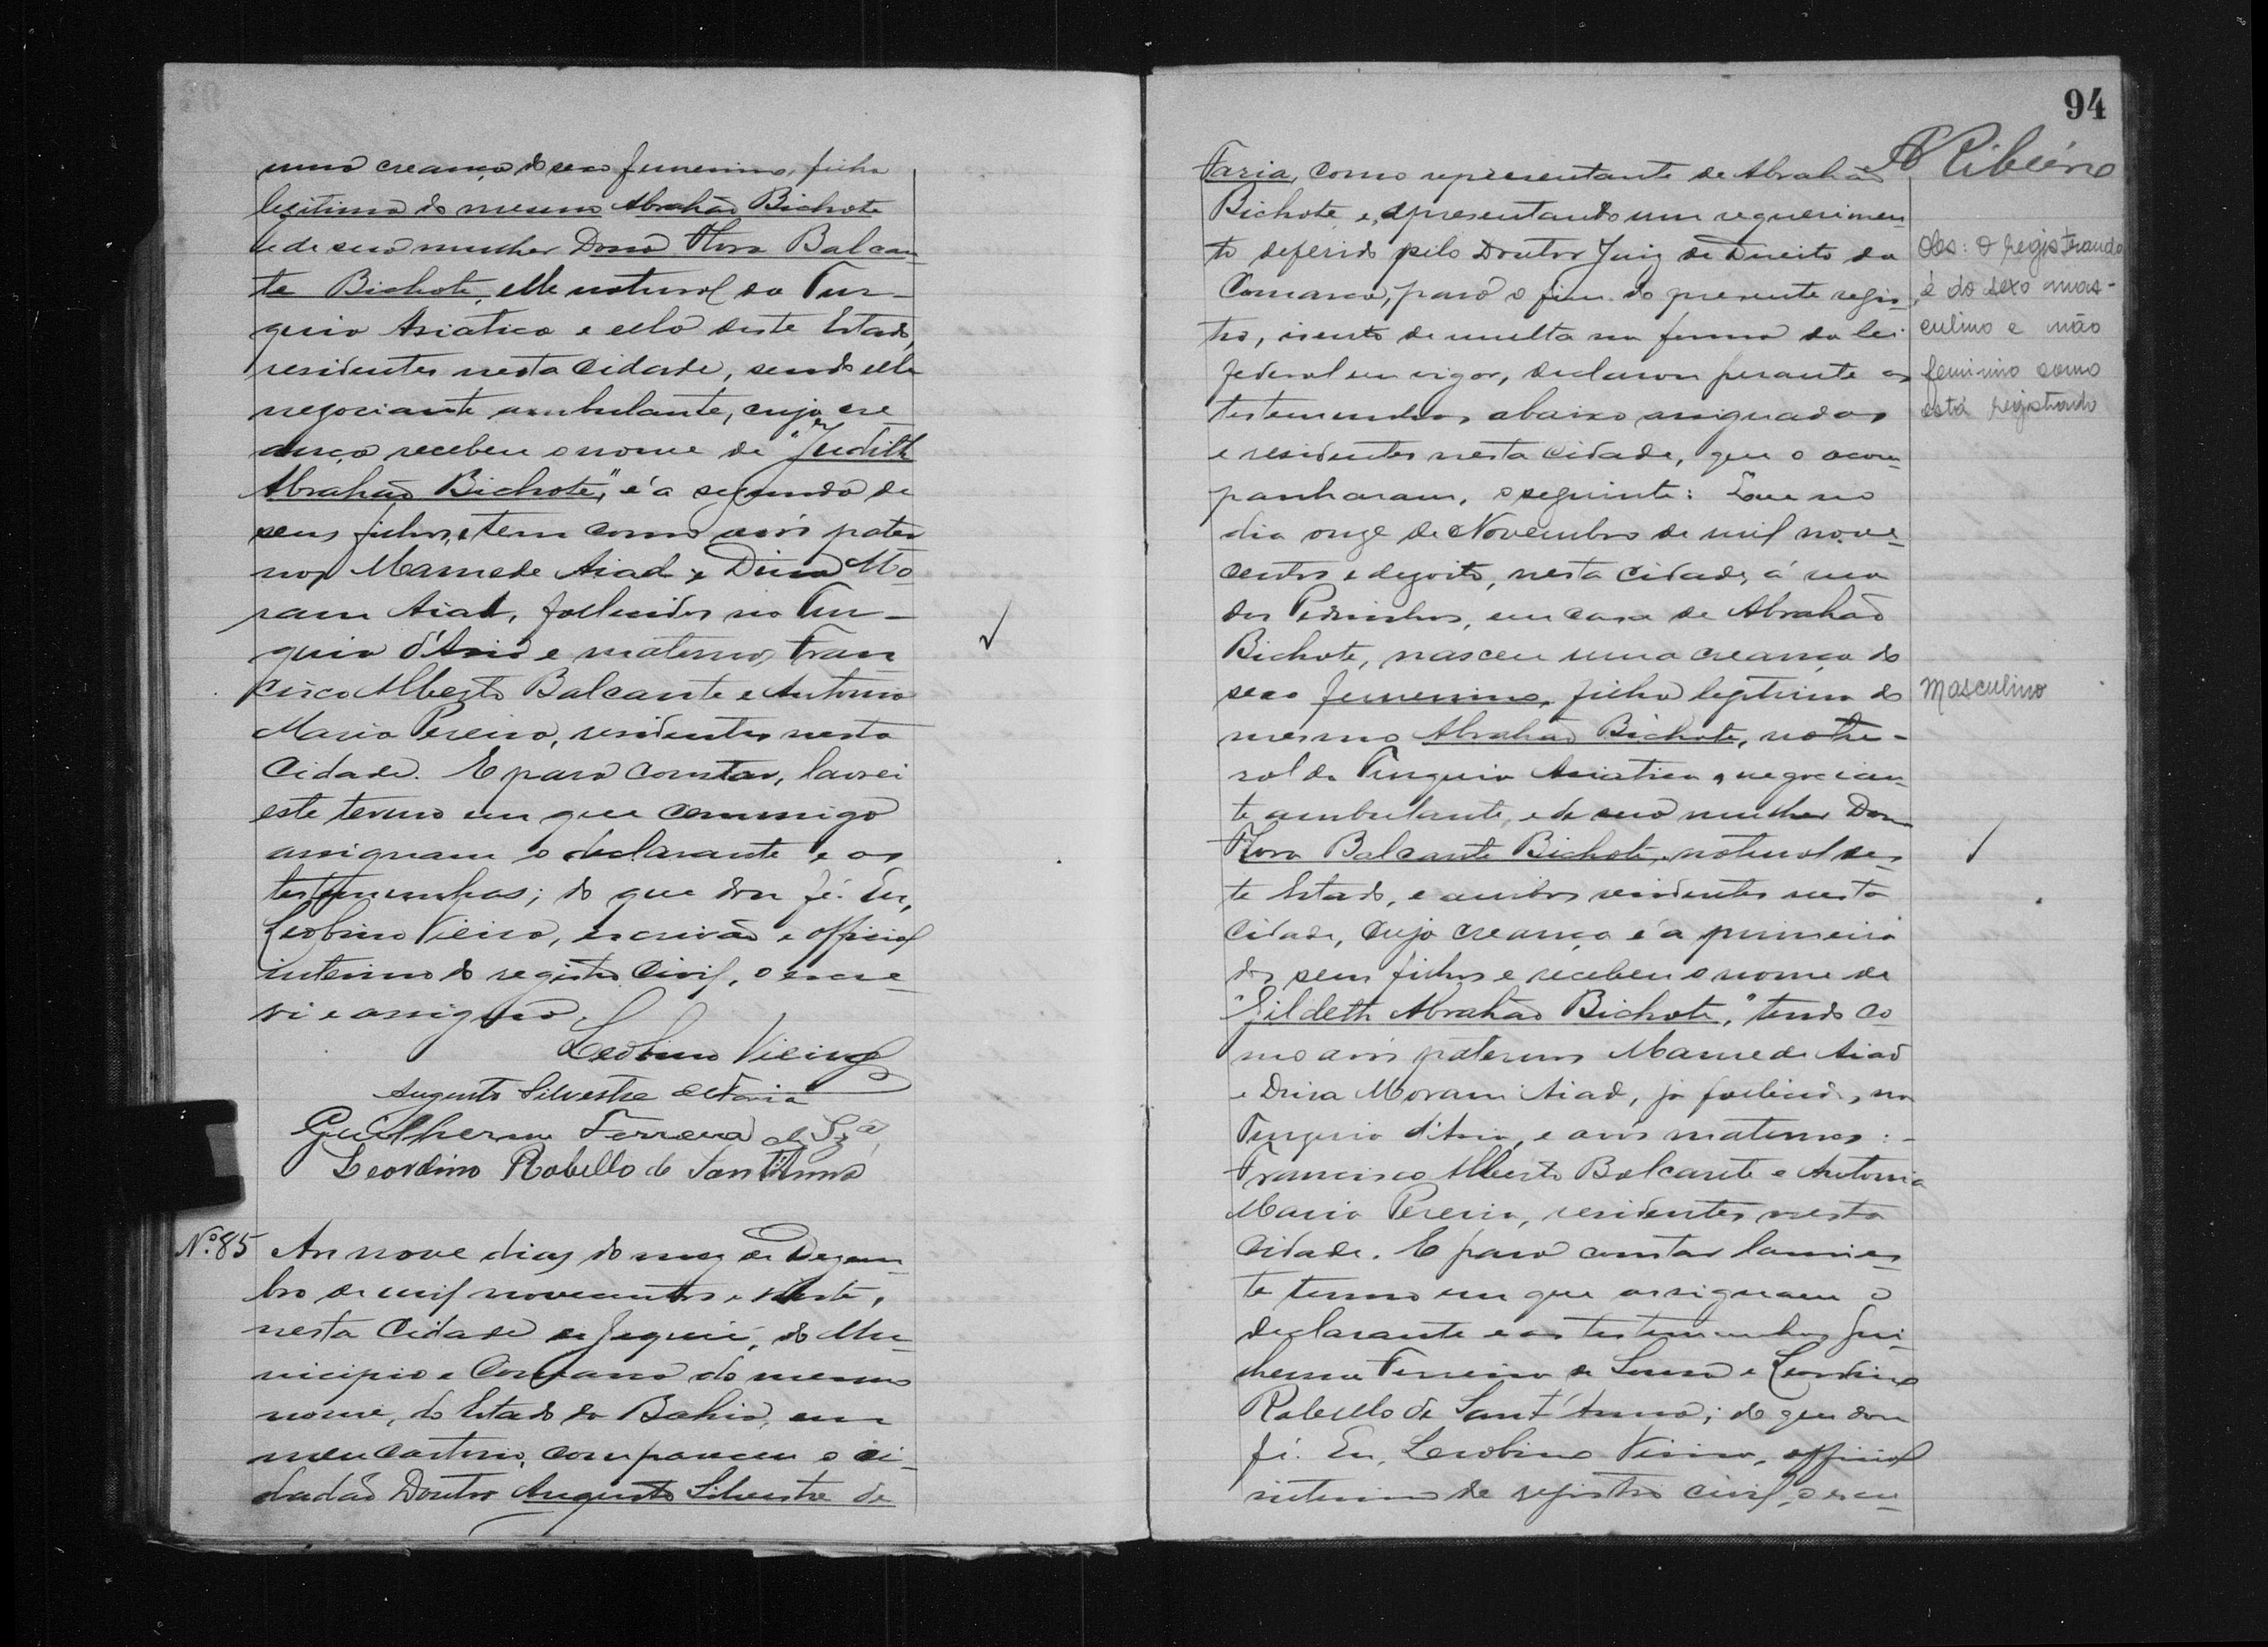 uma creança do sexo femenino, filha
legitima do mesmo Abrahão Bichote
e de sua mulher Dona Flora Balcan-
te Bichote, elle natural da Tur-
quia Asiatica e ella deste Estado,
residentes nesta Cidade, sendo elle
negociante ambulante, cuja cre
ança recebeu o nome de "Judith
Abrahão Bichote," é a segunda de
seus filhos, e tem como avós pater
nos Mamede Aiad e Dina Mo
ram Aiad, fallecidos na Tur-
quia d'Asia e maternos, Fran
cisco Alberto Balcante e Antonia
Maria Pereira, residentes nesta
Cidade. E para constar, lavrei
este termo em que commigo
assignam o declarante e as
testemunhas; do que dou fé. Eu,
Leobino Vieira, escrivão e official
interino do registro Civil, o escre-
vi e assigno.
Leobino Vieira
Augusto Silvestre de Faria
Guilherme Ferreira de Sza
Leordino Rabello de Sant'Anna
Nº 85 Aos nove dias do mez de Dezem-
bro de mil novecentos e vinte,
nesta Cidade de Jequié, do Mu-
nicipio e Comarca do mesmo
nome, do Estado da Bahia, em
meu cartorio, compareceu o ci-
dadão Doutor Augusto Silvestre de
94
A Ribeiro
Faria, como representante de Abrahão
Bichote e, apresentando um requerimen-
to deferido pelo Doutor Juiz de Direito da
Comarca, para o fim do presente regis-
tro, isento de multa na forma da lei
federal em vigor, declarou perante as
testemunhas abaixo assignadas
e residentes nesta Cidade, que o acom-
panharam, o seguinte: Que no
dia onze de Novembro de mil nove-
centos e dezoito, nesta Cidade, á rua
dos Pedrinhos, em casa de Abrahão
Bichote, nasceu uma creança do
sexo femenino, filha legitima do
mesmo Abrahão Bichote, natu-
ral da Turquia Asiatica, negocian-
te ambulante, e de sua mulher Dona
Flora Balcante Bichote, natural des-
te Estado, e ambos residentes nesta
Cidade, cuja creança é a primeira
dos seus filhos e recebeu o nome de
"Gildeth Abrahão Bichote," tendo co
mo avós paternos Mamede Aiad
e Dina Moram Aiad, já fallecidos, na
Turquia d'Asia, e avós maternos:-
Francisco Alberto Balcante e Antonia
Maria Pereira, residentes nesta
Cidade. E para constar lavrei es-
te termo em que assignam o
declarante e as testemunhas Gui-
lherme Ferreira de Sousa e Leordino
Rabello de Sant'Anna; do que dou
fé. Eu, Leobino Vieira, official
interino de registro civil, o escre-
Obs: O registrando
é do sexo mas-
culino e não
feminino como
está registrado
Masculino